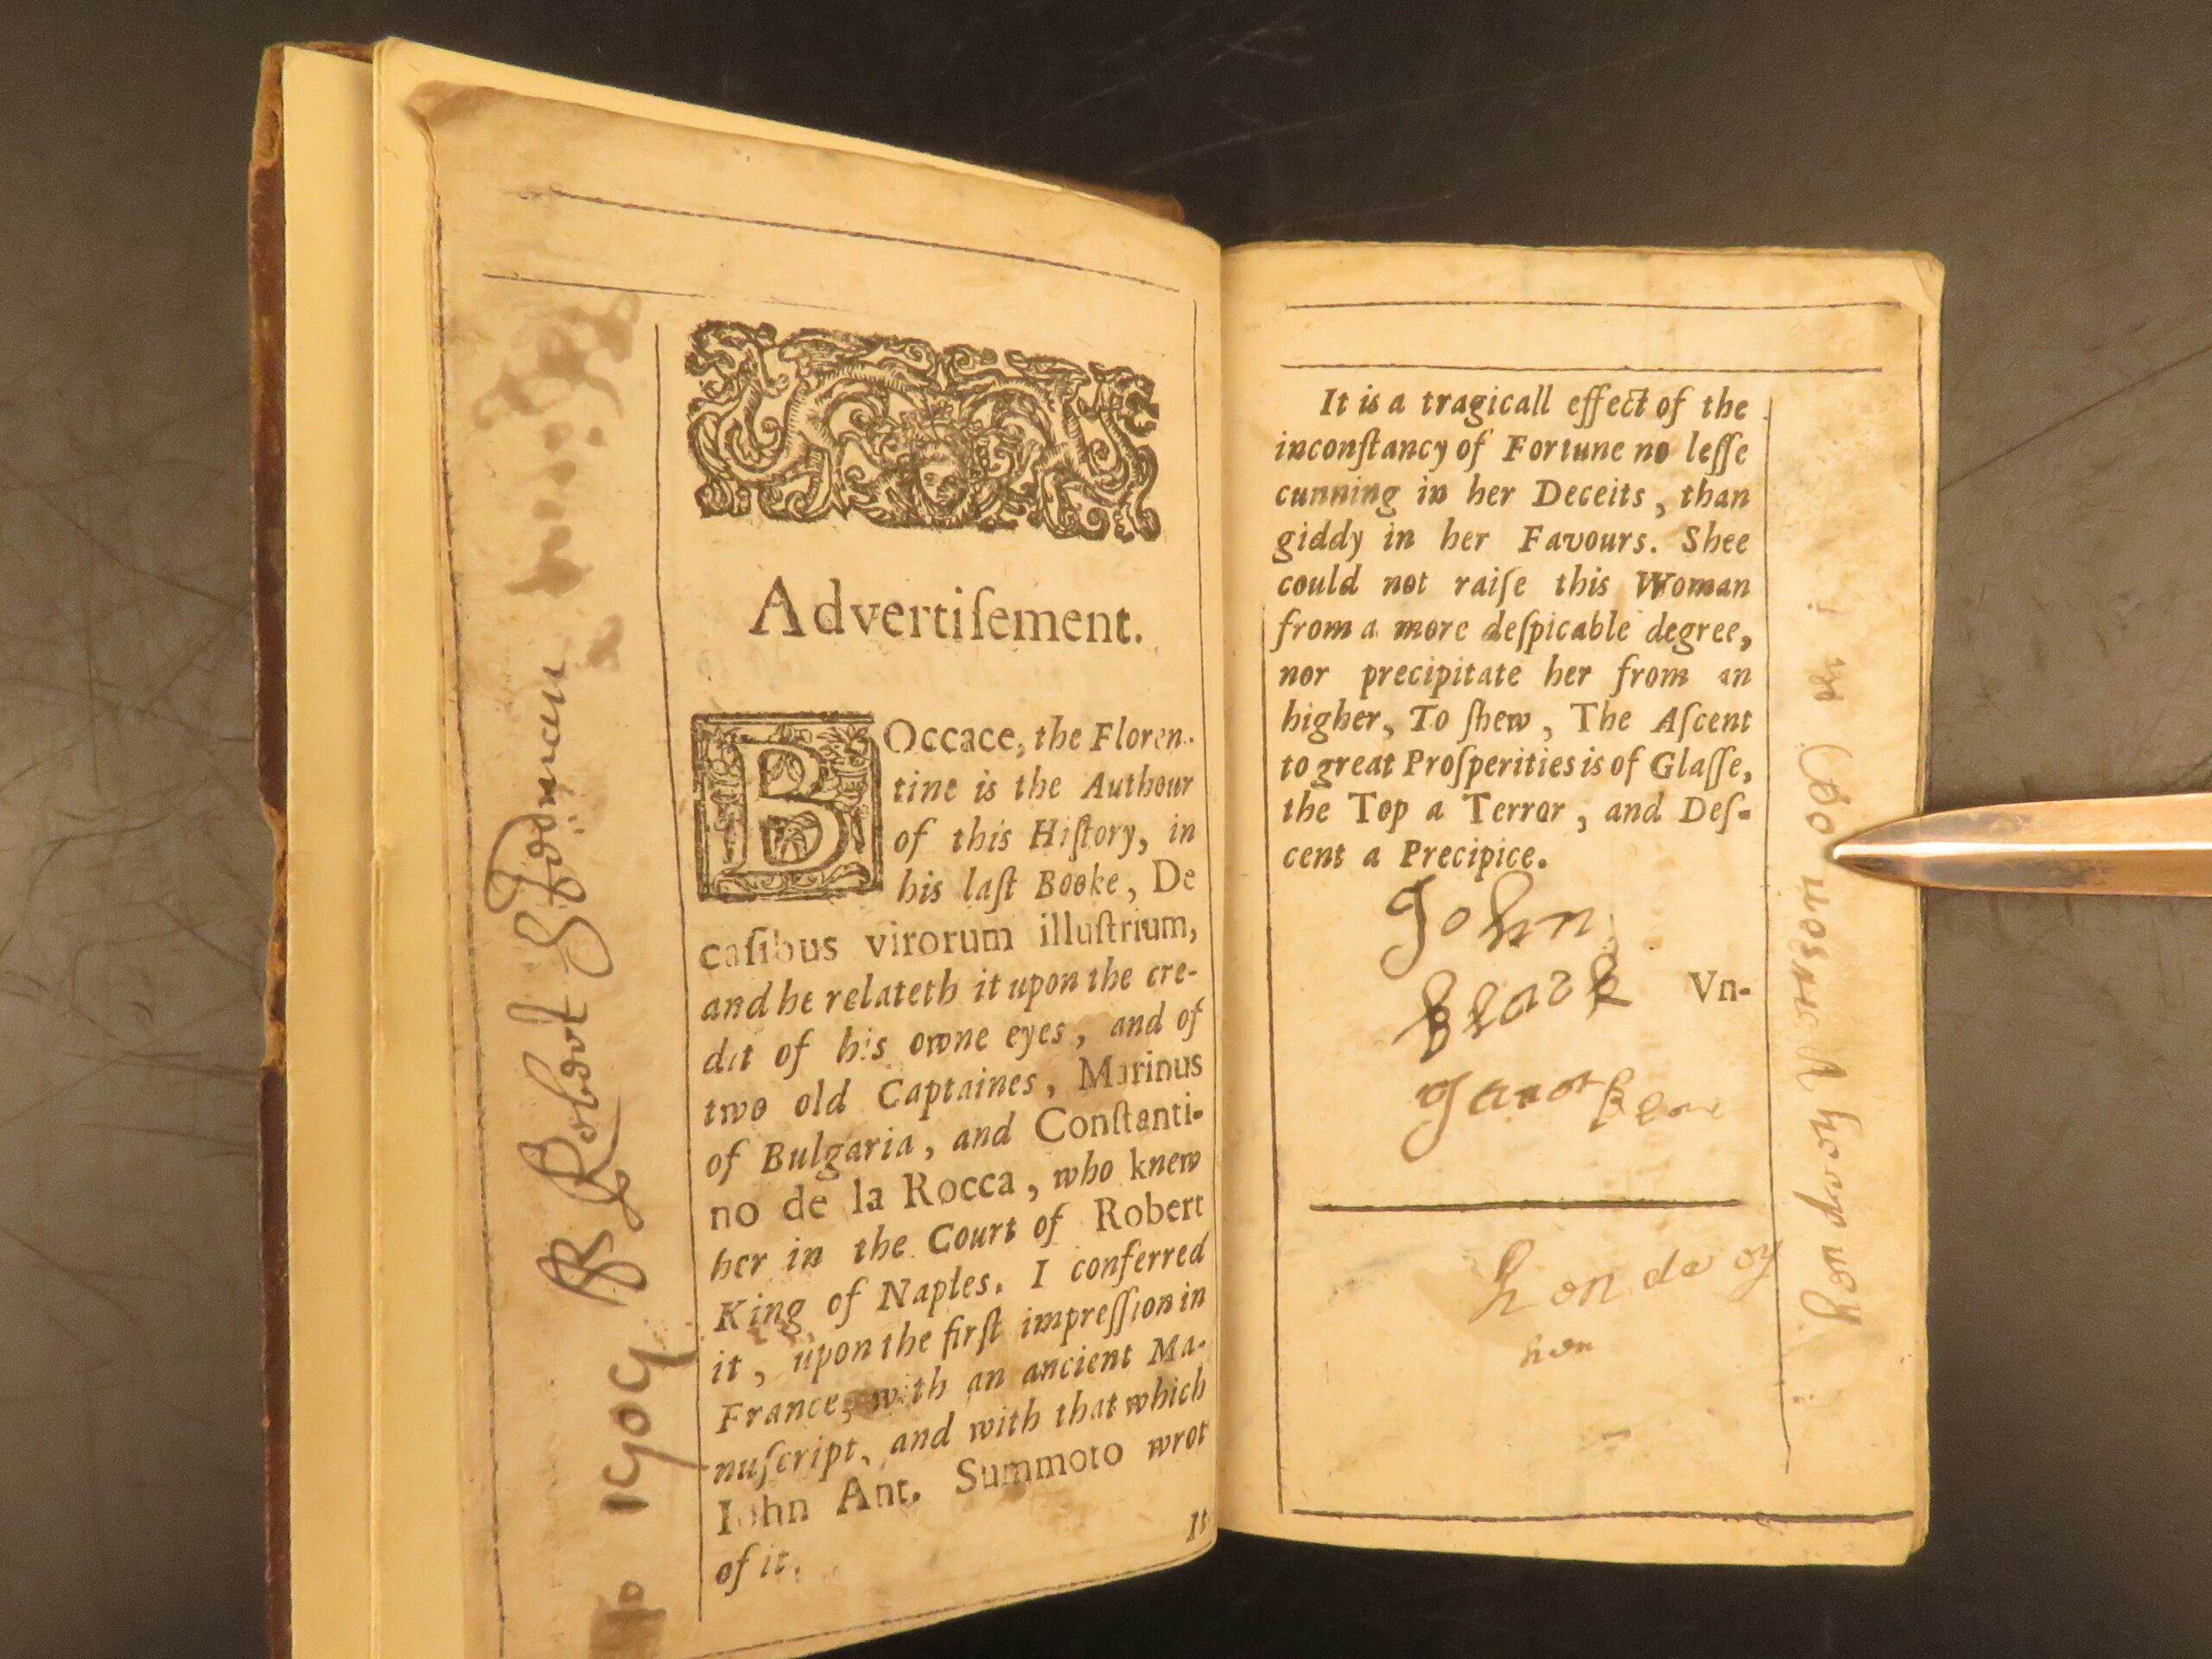 Advertiſement.
BOccace, the Floren-
tine is the Authour
of this Hiſtory, in
his laſt Booke, De
caſibus virorum illuſtrium,
and he relateth it upon the cre-
dit of his owne eyes, and of
two old Captaines, Marinus
of Bulgaria, and Conſtanti-
no de la Rocca, who knew
her in the Court of Robert
King of Naples. I conferred
it, upon the firſt impreſſion in
France, with an ancient Ma-
nuſcript, and with that which
Iohn Ant. Summoto wrot
of it.
It
It is a tragicall effect of the
inconſtancy of Fortune no leſſe
cunning in her Deceits, than
giddy in her Favours. Shee
could not raiſe this Woman
from a more deſpicable degree,
nor precipitate her from an
higher, To ſhew, The Aſcent
to great Proſperities is of Glaſſe,
the Top a Terror, and Deſ-
cent a Precipice.
Vn-
John
Black
hon da oy
hon
Robert